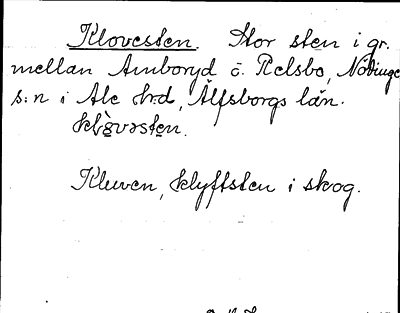 Klovesten. Stor sten i gr.
mellan Amboryd o. Relsbo, Nödinge
s:n i Ale h:d, Älfsborgs län.
Kluven, klyftsten i skog.